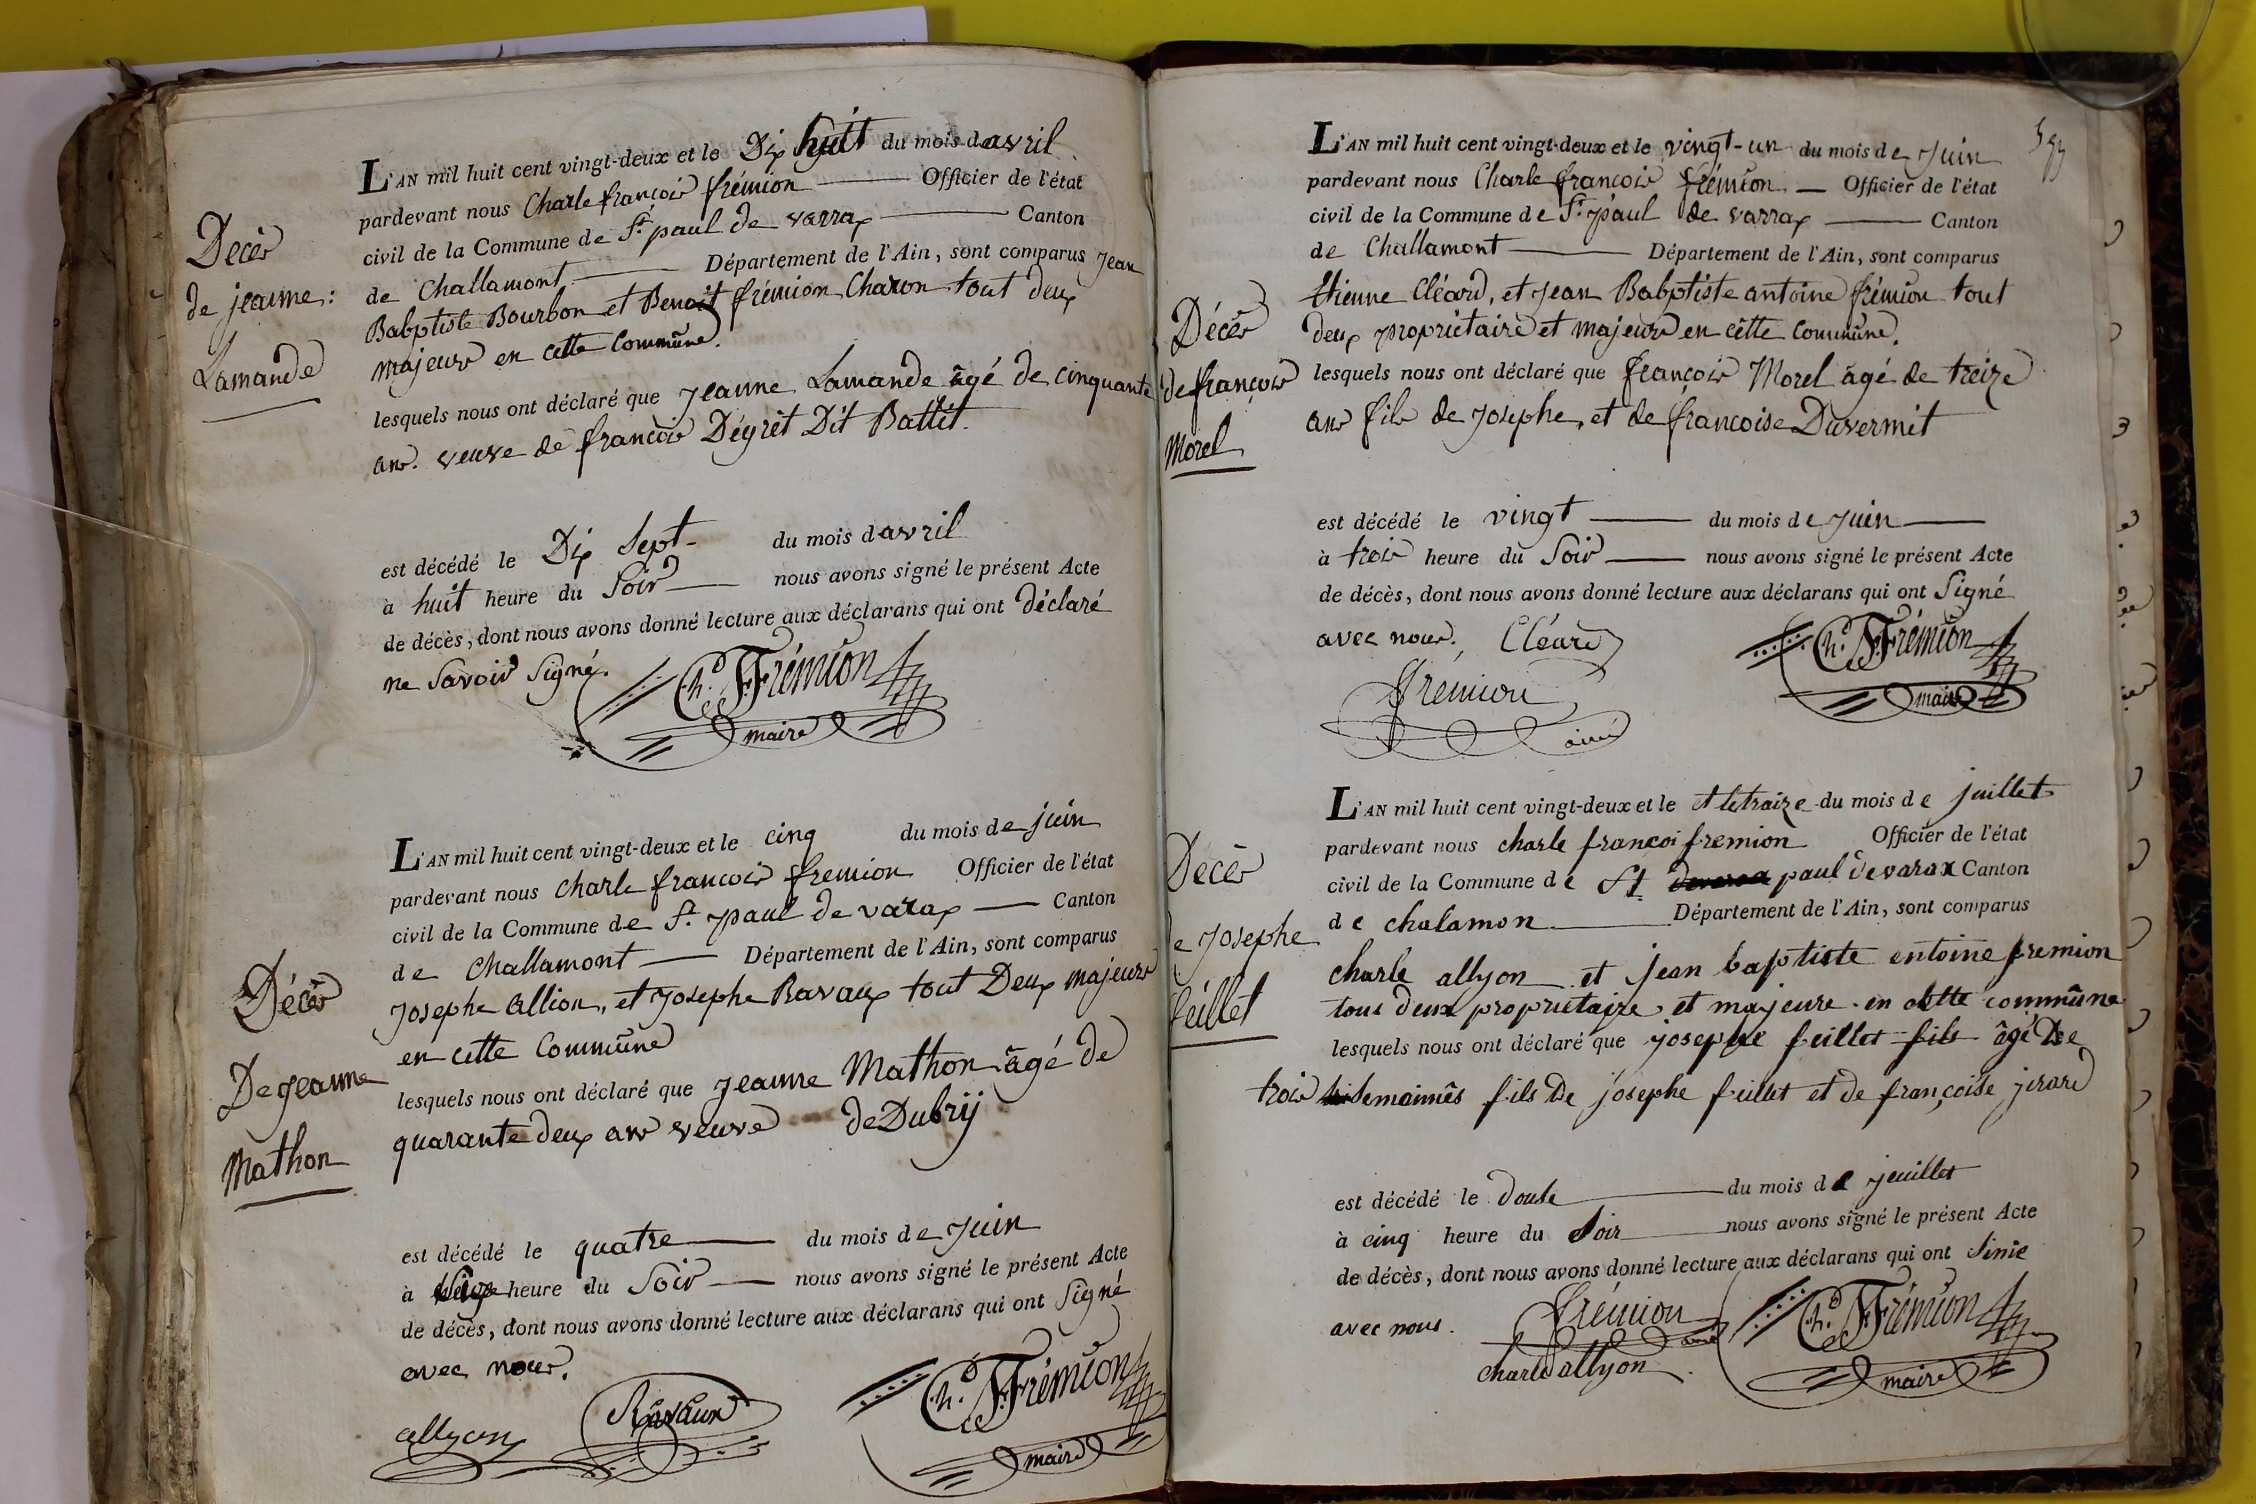 Decès
de jeanne:
Lamande
L'AN mil huit cent vingt-deux et le Dix huit du mois d avril
pardevant nous Charle françois frémion Officier de l'état
civil de la Commune de St. paul de varrax Canton
de Challamont Département de l'Ain, sont comparus Jean
Babptiste Bourbon et Benoit frémion Charon tout deux
majeurs en cette Commune.
lesquels nous ont déclaré que Jeanne Lamande âgé de cinquante
ans. veuve de françois Dégrêt Dit Battit.
est décédé le Dix Sept- du mois d avril
à huit heure du Soir nous avons signé le présent Acte
de décès, dont nous avons donné lecture aux déclarans qui ont déclaré
ne Savoir Signé.
Ch. F. Frémion
maire
Décès
De Jeanne
Mathon
L'AN mil huit cent vingt-deux et le cinq du mois de juin
pardevant nous Charle francois fremion Officier de l'état
civil de la Commune de St. paul de varax Canton
de Challamont Département de l'Ain, sont comparus
Josephe Allion, et Josephe Ravaux tout Deux majeurs
en cette Commune
lesquels nous ont déclaré que Jeanne Mathon âgé de
quarante deux ans veuve de Dubrij
est décédé le quatre du mois de Juin
à heure du Soir nous avons signé le présent Acte
de décès, dont nous avons donné lecture aux déclarans qui ont Signé
avec nous.
allyon
Ch. F. Frémion
maire
Décès
de françois
Morel
L'AN mil huit cent vingt-deux et le vingt-un du mois de Juin
pardevant nous Charle francois frémion Officier de l'état
civil de la Commune de St. paul de varrax Canton
de Challamont Département de l'Ain, sont comparus
Etienne Cléard, et Jean Babptiste antoine frémion tout
deux propriétaire et majeurs en cette Commune.
lesquels nous ont déclaré que françois Morel âgé de treize
ans fils de Josephe, et de francoise Duvermit
est décédé le vingt du mois de Juin
à trois heure du Soir nous avons signé le présent Acte
de décès, dont nous avons donné lecture aux déclarans qui ont Signé
avec nous. Cléard
Ch. F. Frémion
maire
frémion
ainé
Decès
de Josephe
feillet
L'AN mil huit cent vingt-deux et le du mois de juillet
pardevant nous charle francoi fremion Officier de l'état
civil de la Commune de St paul de varax Canton
de chalamon Département de l'Ain, sont comparus
charle allyon et jean baptiste entoine fremion
tous deux propriétaire et majeure en cette commune
lesquels nous ont déclaré que josephe feillet fils âgé De
trois Semainês fils de josephe feillet et de françoise jirard
est décédé le douse du mois de jeuillet
à cinq heure du Soir nous avons signé le présent Acte
de décès, dont nous avons donné lecture aux déclarans qui ont Sinie
avec nous. frémion
ainé
charle allyon
Ch. F. Frémion
maire